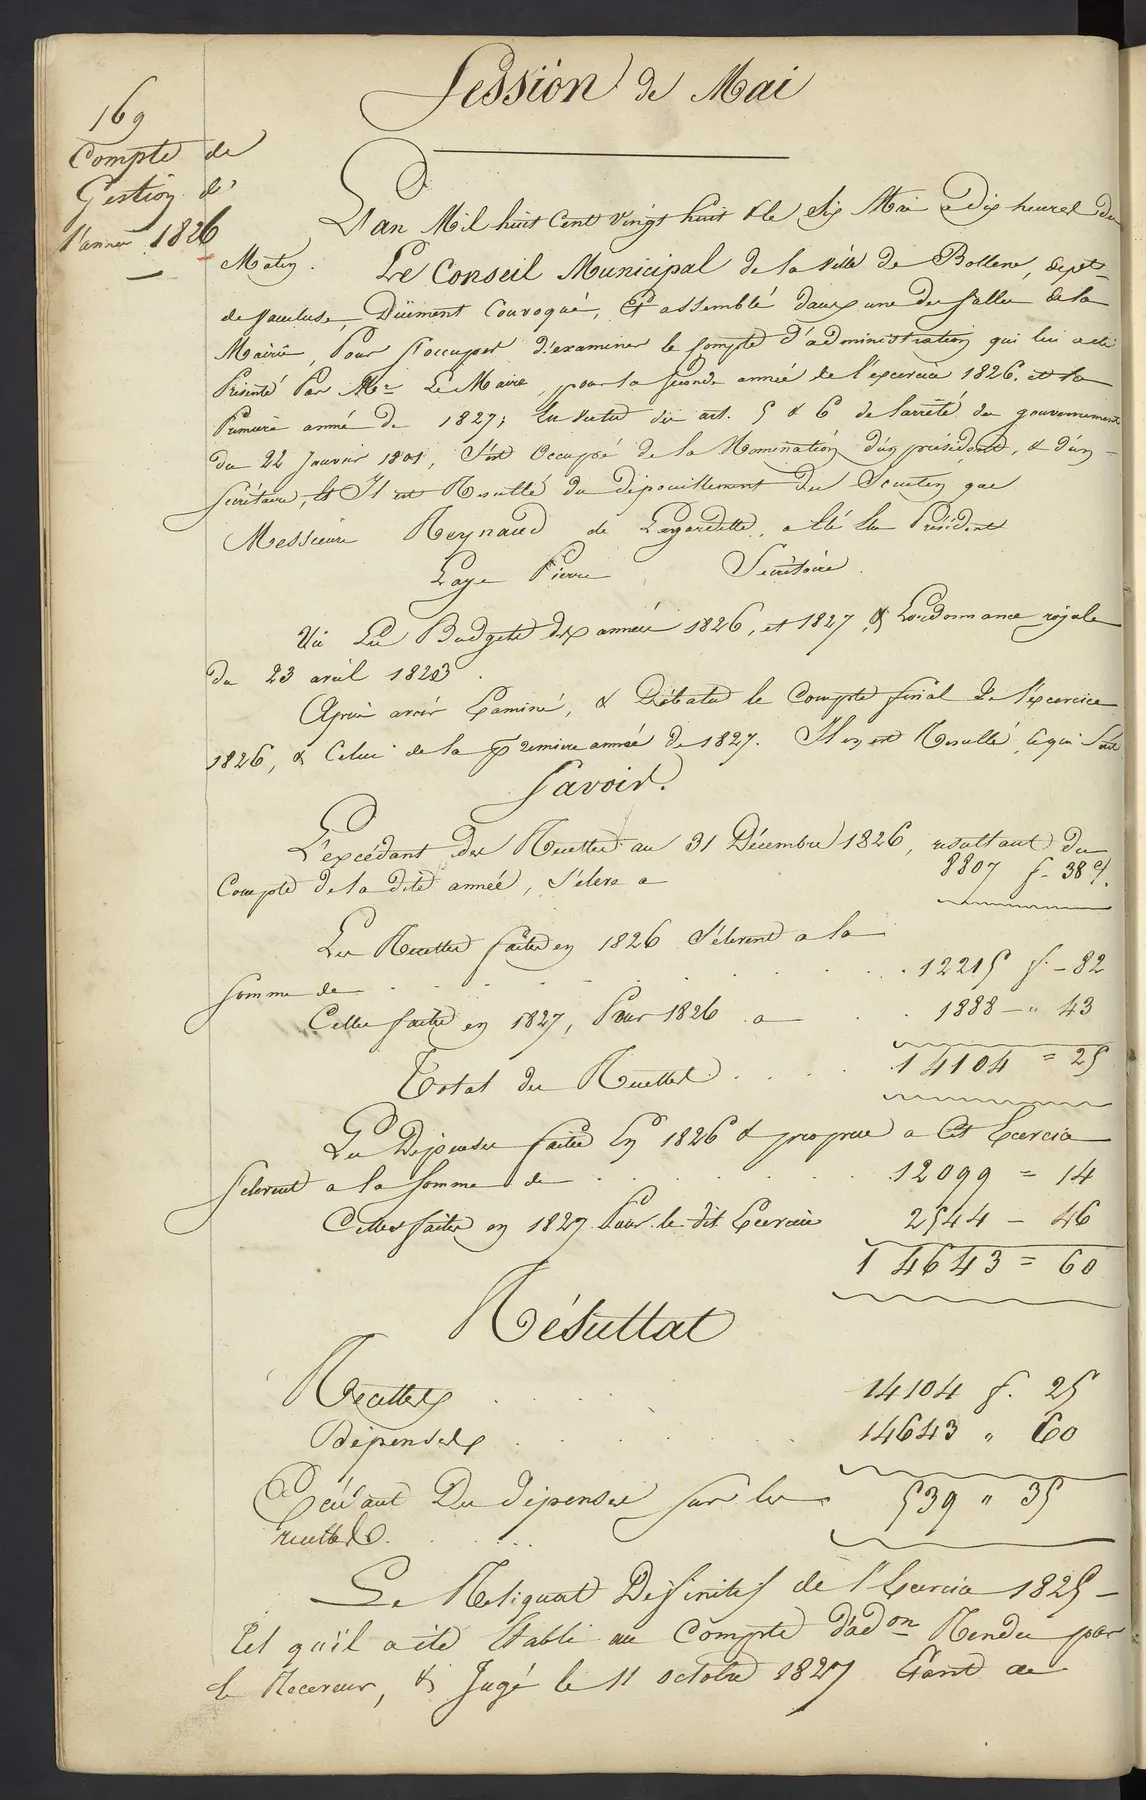 Session de Mai
169
Compte de
Gestion de
l'année 1826
L'an Mil huit Cent vingt huit & le dix Mai a dix heures du
Matin. Le Conseil Municipal de la ville de Bollene, depet
de Vaucluse, Düement Convoqué, et assemblé dans une des salles de la
Mairie, Pour s'occuper d'examiner le Compte d'administration qui lui a été
Présenté Par Mr Le Maire, pour la seconde année de l'exercice 1826. et la
Premiere année de 1827; en vertu des art. 5 & 6 de l'arrêté du gouvernement
du 22 Janvier 1801, S'est Occupé de la Nomination d'un président, & d'un
Secrétaire, et Il est Resulté du dépouillement du Scrutin que
Messieurs Reynaud de Lagardette, a été élu Président
Laye Pierre Secrétaire
Vu Les Budgets des années 1826, et 1827, & L'ordonnance royale
du 23 avril 1823.
Après avoir Examiné, & Débatu le Compte final de l'exercice
1826, & Celui de la Premiere année de 1827. Il en est Resulté, ce qui suit
Savoir.
L'excédant des Recettes au 31 Décembre 1826, resultant du
Compte de la dite année, s'éleve a 8807 f - 38 c.
Les Recettes faites en 1826 s'élevent a la
somme de 12215 f. - 82
Celles faites en 1827, Pour 1826 a 1888 - " 43
Total des Recettes 14104 = 25
Les Dépenses faites en 1826 & propres a Cet Exercice
s'elevent a la somme de 12099 = 14
Celles faites en 1827 Pour le dit Exercice 2544 - 46
14643 = 60
Résultat
Recettes 14104 f. 25
Dépenses 14643 " 60
Excédant Des dépenses sur les 539 " 35
recettes
Le Reliquat Définitif de l'Exercice 1825 -
tel qu'il a été Etabli au Compte d'adon Rendu par
le Receveur, & Jugé le 11 octobre 1827 Etant de